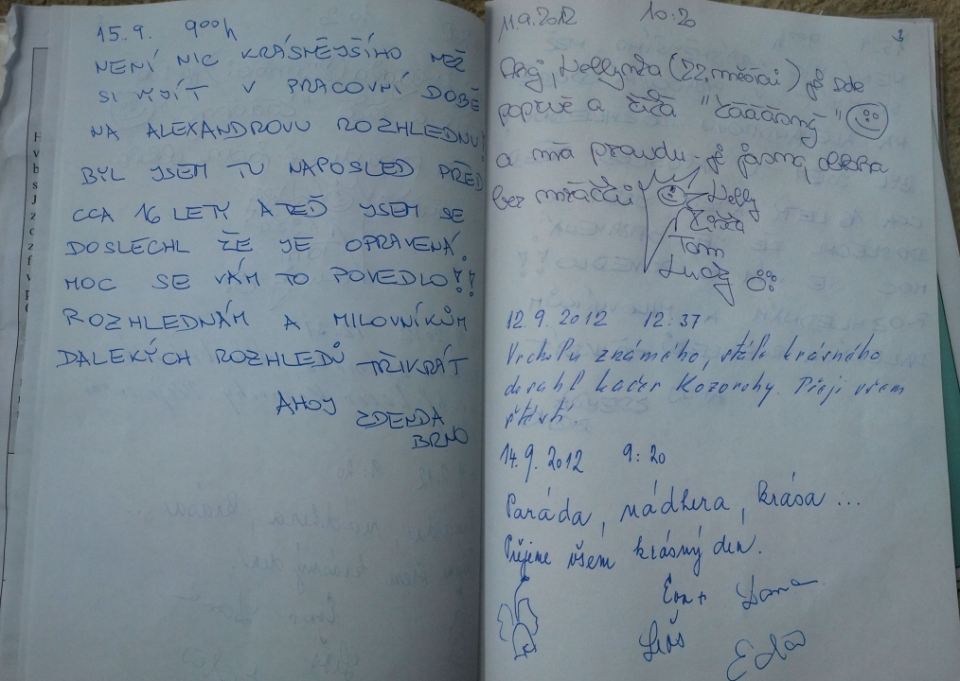 15.9. 900h
NENÍ NIC KRÁSNĚJŠÍHO NEŽ
SI VYJÍT V PRACOVNÍ DOBĚ
NA ALEXANDROVU ROZHLEDNU!
BYL JSEM TU NAPOSLED PŘED
CCA 16 LETY A TEĎ JSEM SE
DOSLECHL ŽE JE OPRAVENÁ.
MOC SE VÁM TO POVEDLO!!
ROZHLEDNÁM A MILOVNÍKŮM
DALEKÝCH ROZHLEDŮ TŘIKRÁT
AHOY ZDENDA
BRNO
11.9.2012 10:20
Nellynka (22 měsíců) je zde
poprvé a "čááárný"
a má pravdu - je jasná, obloha
bez mráčků
Nelly
Tom
Lucy
12.9.2012 12:37
Vrcholu známého, stále krásného
dosáhl kačer Kozorohy. Přeji všem
štěstí.
14.9.2012 9:20
Paráda, nádhera, krása ...
Přejeme všem krásný den.
Eva + Dana